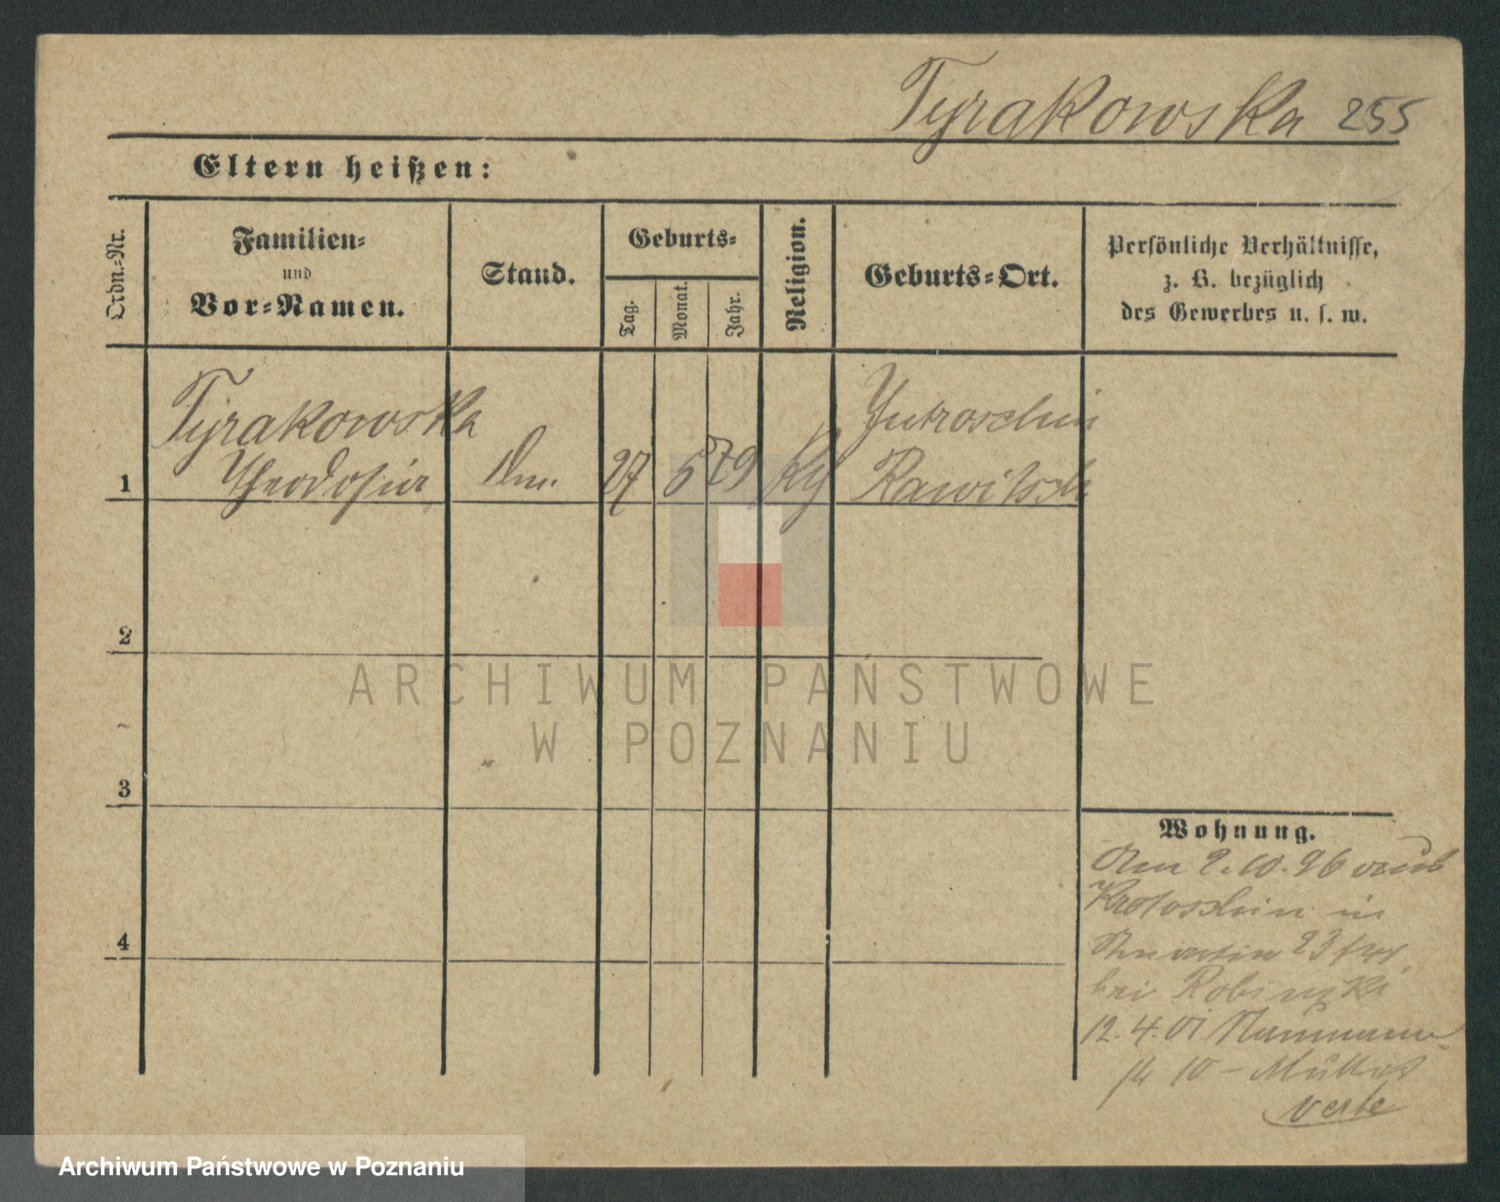 Tyrakowska 255
Eltern heißen:
Ordn.-Nr.
Familien-
und
Vor-Namen.
Stand.
Geburts-
Tag.
Monat.
Jahr.
Religion.
Geburts-Ort.
Persönliche Verhältnisse,
z. B. bezüglich
des Gewerbes u. s. w.
Tyrakowska
Theodosia
27 5 79
Jutroschin
Rawitsch
1
2
3
4
Wohnung.
2.10.96 aus
Krotoschin in
23
bei
12.4.01 Naumann-
10 –
ARCHIWUM PAŃSTWOWE
W POZNANIU
Archiwum Państwowe w Poznaniu